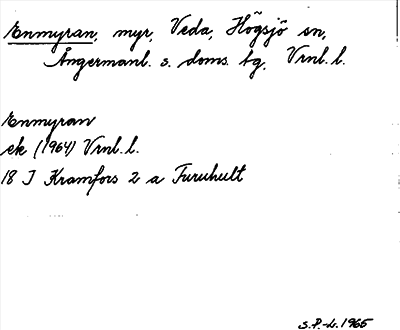 Enmyran, myr, Veda, Högsjö sn,
Ångermanl. s. doms. tg. Vrnl. l.
Enmyran
ek (1964) Vrnl. l.
18 I Kramfors 2 a Furuhult
S.P.-L. 1965